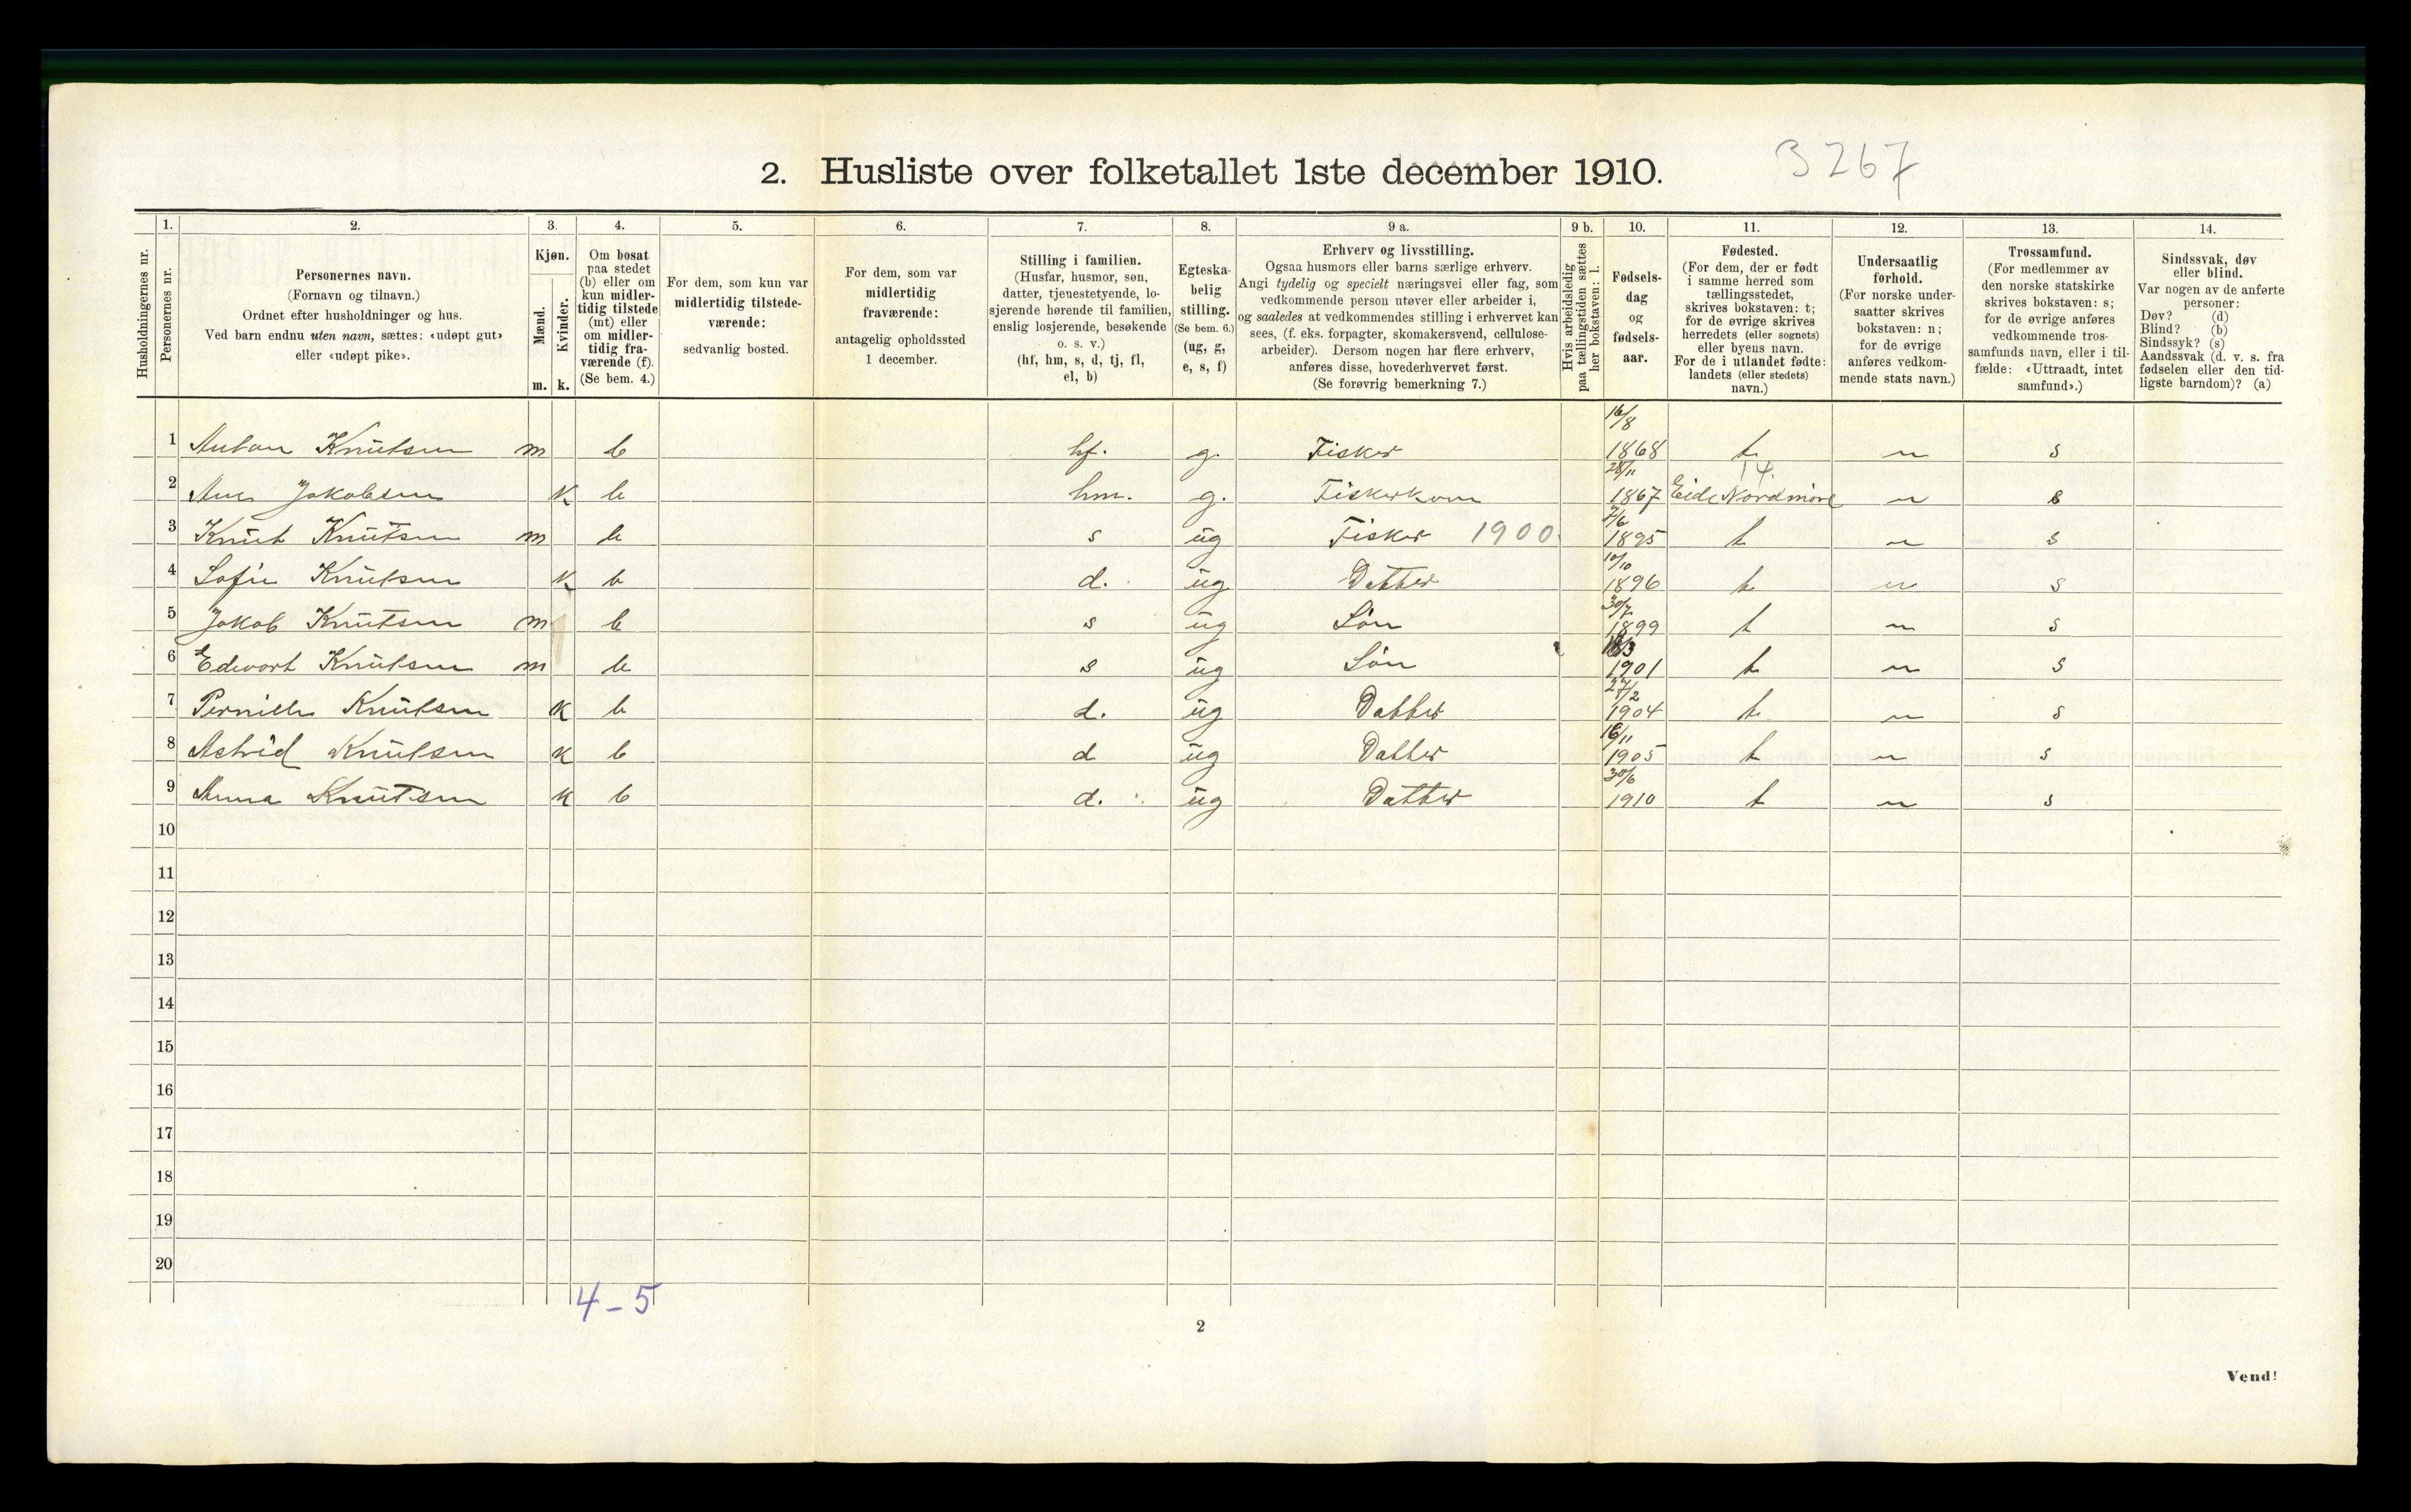 2. Husliste over folketallet 1ste december 1910.
3267
1. 2. 3. 4. 5. 6. 7. 8. 9 a. 9 b. 10. 11. 12. 13. 14.
Husholdningernes nr.
Personernes nr.
Personernes navn.
(Fornavn og tilnavn.)
Ordnet efter husholdninger og hus.
Ved barn endnu uten navn, sættes: «udøpt gut»
eller «udøpt pike».
Kjøn.
Mænd.
Kvinder.
m. k.
Om bosat
paa stedet
(b) eller om
kun midler-
tidig tilstede
(mt) eller
om midler-
tidig fra-
værende (f).
(Se bem. 4.)
For dem, som kun var
midlertidig tilstede-
værende:
sedvanlig bosted.
For dem, som var
midlertidig
fraværende:
antagelig opholdssted
1 december.
Stilling i familien.
(Husfar, husmor, søn,
datter, tjenestetyende, lo-
sjerende hørende til familien,
enslig losjerende, besøkende
o. s. v.)
(hf, hm, s, d, tj, fl,
el, b)
Egteska-
belig
stilling.
(Se bem. 6.)
(ug, g,
e, s, f)
Erhverv og livsstilling.
Ogsaa husmors eller barns særlige erhverv.
Angi tydelig og specielt næringsvei eller fag, som
vedkommende person utøver eller arbeider i,
og saaledes at vedkommendes stilling i erhvervet kan
sees, (f. eks. forpagter, skomakersvend, cellulose-
arbeider). Dersom nogen har flere erhverv,
anføres disse, hovederhvervet først.
(Se forøvrig bemerkning 7.)
Hvis arbeidsledig
paa tællingstiden sættes
her bokstaven: l.
Fødsels-
dag
og
fødsels-
aar.
Fødested.
(For dem, der er født
i samme herred som
tællingsstedet,
skrives bokstaven: t;
for de øvrige skrives
herredets (eller sognets)
eller byens navn.
For de i utlandet fødte:
landets (eller stedets)
navn.)
Undersaatlig
forhold.
(For norske under-
saatter skrives
bokstaven: n;
for de øvrige
anføres vedkom-
mende stats navn.)
Trossamfund.
(For medlemmer av
den norske statskirke
skrives bokstaven: s;
for de øvrige anføres
vedkommende tros-
samfunds navn, eller i til-
fælde: «Uttraadt, intet
samfund».)
Sindssvak, døv
eller blind.
Var nogen av de anførte
personer:
Døv? (d)
Blind? (b)
Sindssyk? (s)
Aandssvak (d. v. s. fra
fødselen eller den tid-
ligste barndom)? (a)
16/8
1 Anton Knutsen m b hf. g. Fisker 1868 t n s
28/11 14.
2 Ane Jakobsen k b hm. g. Fiskerkone 1867 Eide Nordmøre n s
7/6
3 Knut Knutsen m b s ug Fisker 1900 1895 t n s
10/10
4 Sofie Knutsen k b d. ug Datter 1896 t n s
30/7
5 Jakob Knutsen m b s ug Søn 1899 t n s
6 Edvart Knutsen m b s ug Søn 1901 t n s
27/2
7 Pernille Knutsen k b d. ug Datter 1904 t n s
16/11
8 Astrid Knutsen k b d ug Datter 1905 t n s
30/6
9 Anna Knutsen k b d. ug Datter 1910 t n s
10
11
12
13
14
15
16
17
18
19
20
4 - 5
2
Vend!